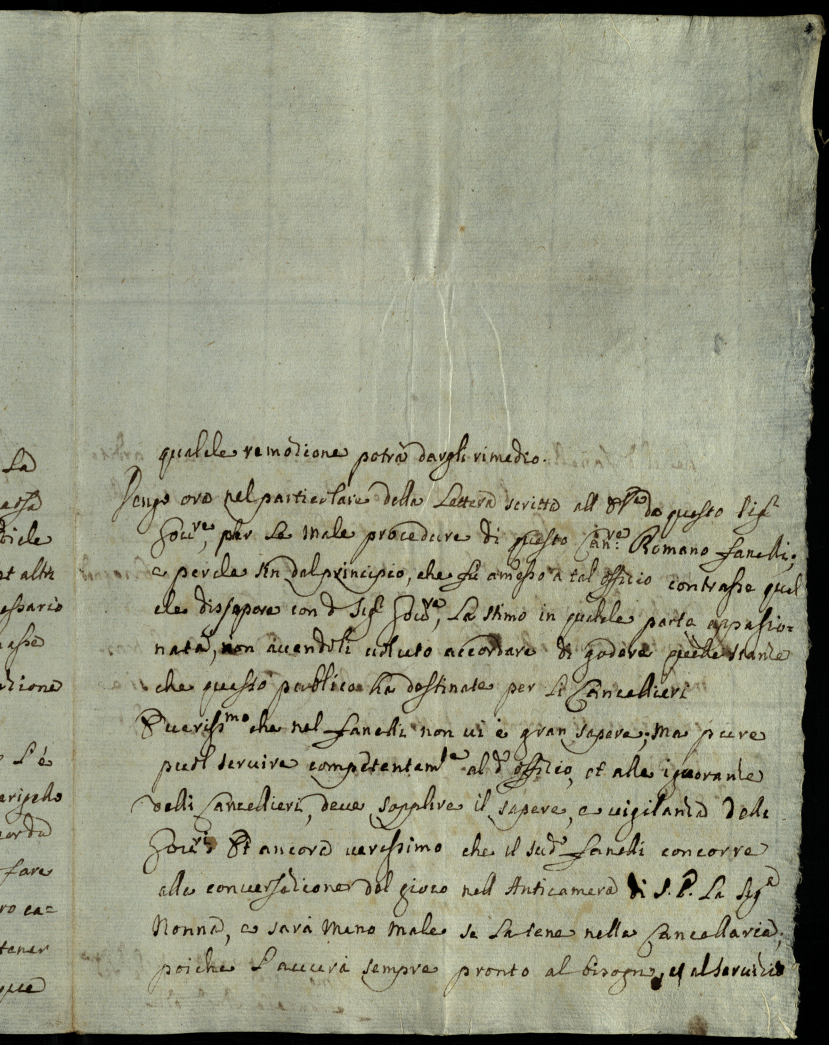 La
essa
ticle
et altri
essario
asse
zione
L'è
arigello
corda
fare
ro ca=
tener
que
qualche remozione potrà dargli rimedio.
Vengo ora nel particolare della Lettera scritta all da questo Sig.r
Gou.re, per la male procedure di questo Can.re Romano Fanelli;
e perche sin dal principio, che fù amesso a tal officio contrasse qual
che dissapore con d.o Sig.r Gou.re, La stimo in qualche parte appassio=
nata, non auendoli uoluto accordare di godere quelle stanze
che questo publico ha destinate per li Cancellieri
È ueriss.mo che nel Fanelli non ui è gran sapere; Ma pure
puol seruire competentem.te al d.o officio, et alle ignoranze
delli Cancellieri, deue supplire il sapere, e uigilanza delli
Gou.ri Et ancora uerissimo che il sud.o Fanelli concorre
alla conuersazione del gioco nell Anticamera di S.E. La Sig.a
Nonna, e sarà meno male se la tene nella Cancellaria;
poiche l'auerà sempre pronto al bisogno, et al seruizio